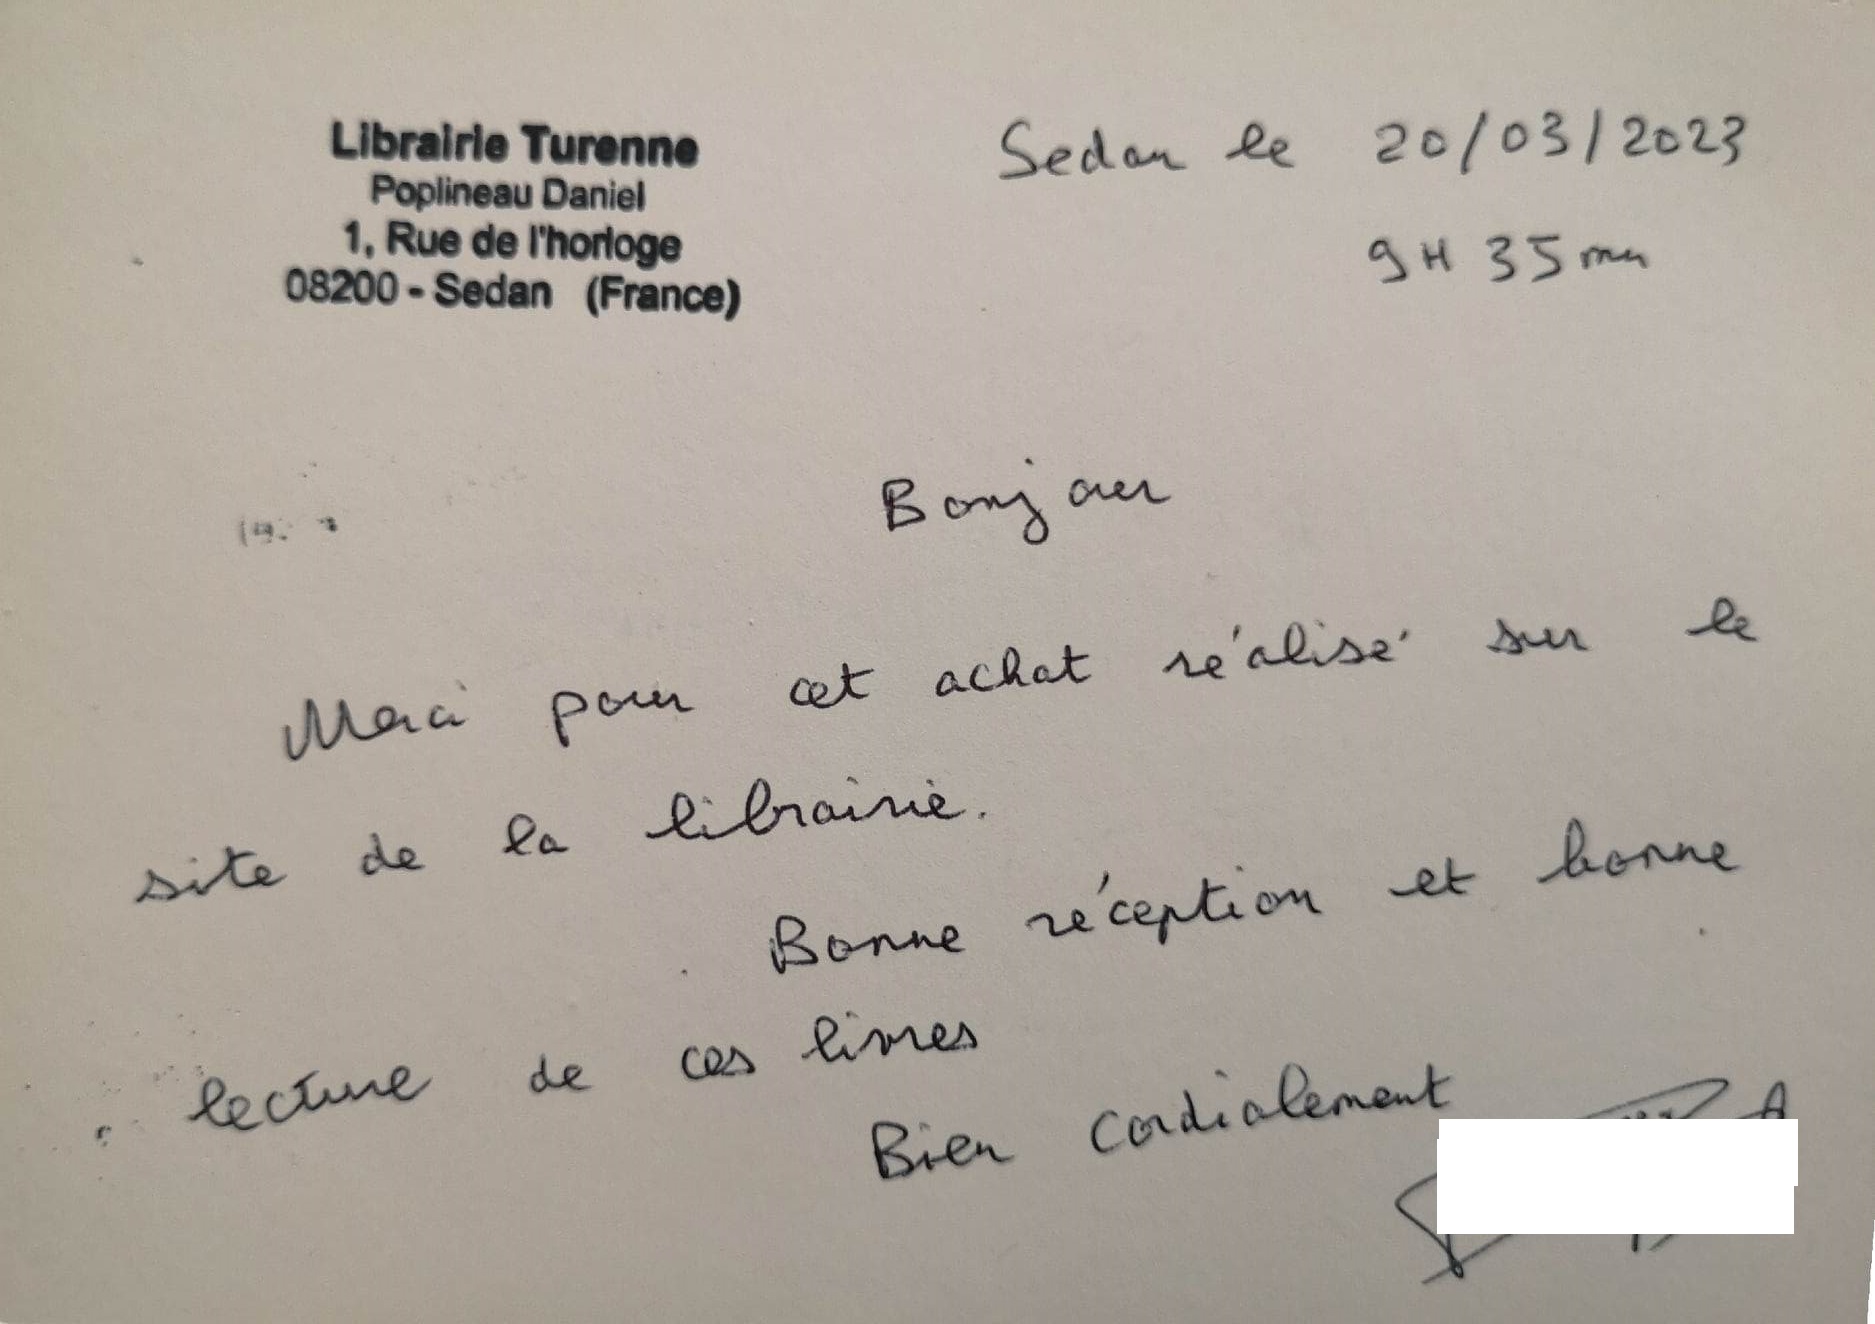 Librairie Turenne
Poplineau Daniel
1, Rue de l'horloge
08200 - Sedan (France)
Sedan le 20/03/2023
9H 35mn
Bonjour
Merci pour cet achat réalisé sur le
site de la librairie.
Bonne réception et bonne
lecture de ces livres
Bien cordialement